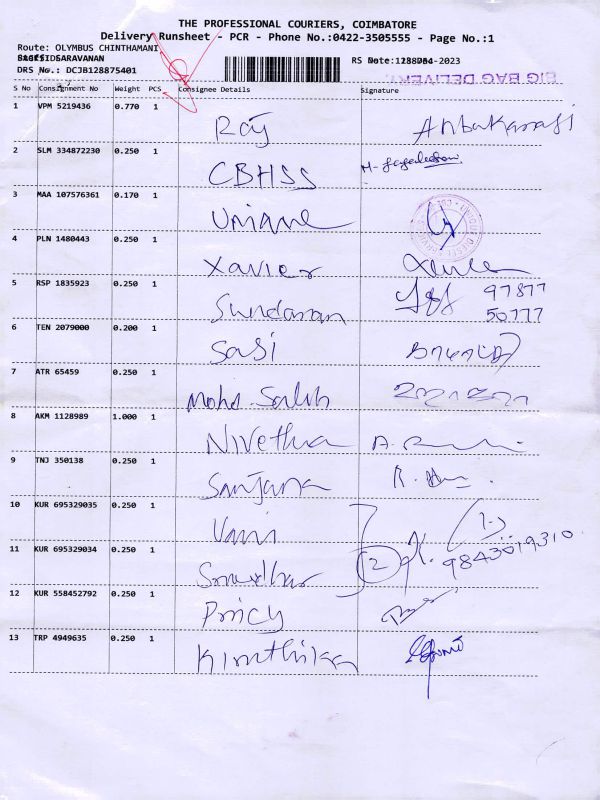 THE PROFESSIONAL COURIERS, COIMBATORE
Delivery Runsheet - PCR - Phone No.:0422-3505555 - Page No.:1
Route: OLYMBUS CHINTHAMANI
SARAVANAN
DRS No.: DCJB128875401
RS Date: -2023
BIG BAG DELIVERY
S No Consignment No Weight PCS Consignee Details Signature
1 VPM 5219436 0.770 1 Raj
2 SLM 334872230 0.250 1 CBHSS
3 MAA 107576361 0.170 1
4 PLN 1480443 0.250 1 Xavier
5 RSP 1835923 0.250 1 Sundaram 97877
50777
6 TEN 2079000 0.200 1 Sasi
7 ATR 65459 0.250 1 Mohd. Salih
8 AKM 1128989 1.000 1 Nivetha
9 TNJ 350138 0.250 1 Sanjana
10 KUR 695329035 0.250 1 Vani
11 KUR 695329034 0.250 1 2 9843019310
12 KUR 558452792 0.250 1 Princy
13 TRP 4949635 0.250 1 Kiruthika